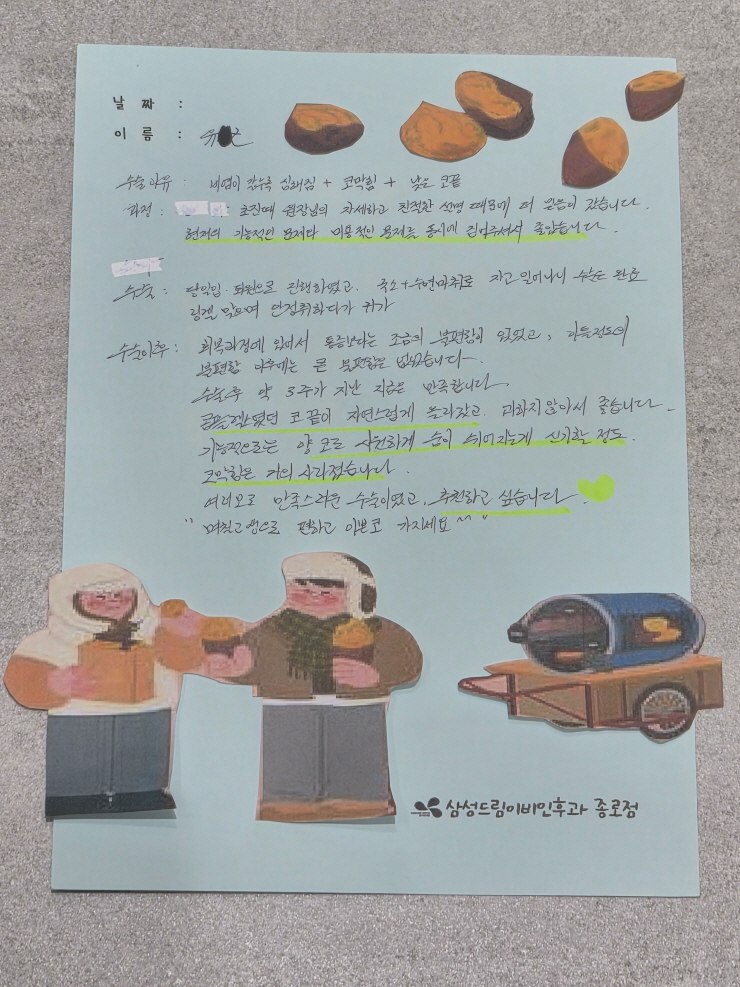 날 짜 :
이 름 : 유
수술이유 : 비염이 갈수록 심해짐 + 코막힘 + 낮은 코끝
과정 : 초진때 원장님의 자세하고 친절한 설명 때문에 더 믿음이 갔습니다.
현재의 기능적인 문제와 미용적인 문제를 동시에 짚어주셔서 좋았습니다.
수술 : 당일입·퇴원으로 진행하였고. 국소+수면마취로 자고 일어나니 수술은 완료
링겔 맞으며 안정취하다가 귀가
수술이후 : 회복과정에 있어서 통증보다는 조금의 불편함이 있었고, 이틀정도의
불편함 이후에는 큰 불편함은 없었습니다.
수술후 약 3주가 지난 지금은 만족합니다.
코끝이 자연스럽게 올라갔고. 과하지않아서 좋습니다.
기능적으로는 양 코로 시원하게 숨이 쉬어지는게 신기할 정도.
코막힘은 거의 사라졌습니다.
여러모로 만족스러운 수술이였고, 추천하고 싶습니다.
" 편하고 이쁜코 가지세요 ^^ "
삼성드림이비인후과 종로점